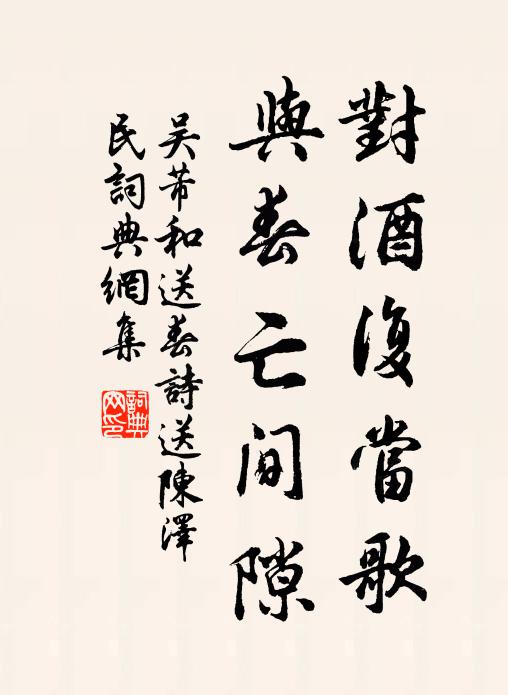 對酒復當歌
與春亡間隙
吴芾和送春詩送陳澤
民詞典網集
詞典网印